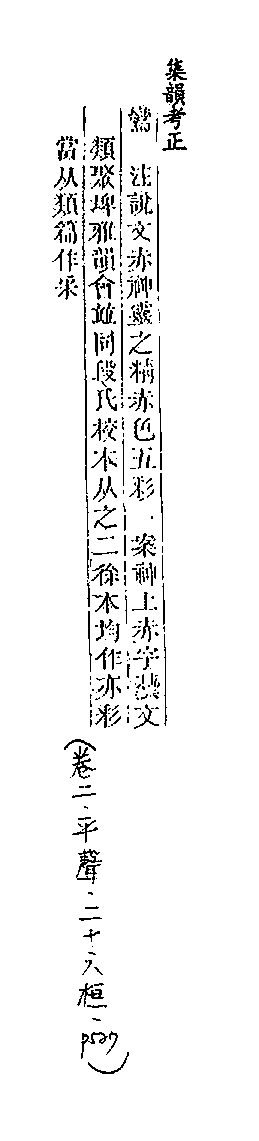 集韻考正
鸞　注說文赤神靈之精赤色五彩．案神上赤字藝文
類聚埤雅韻會並同段氏校本从之二徐本均作亦彩
當从類篇作采
（卷二、平聲、二十六桓、P527）